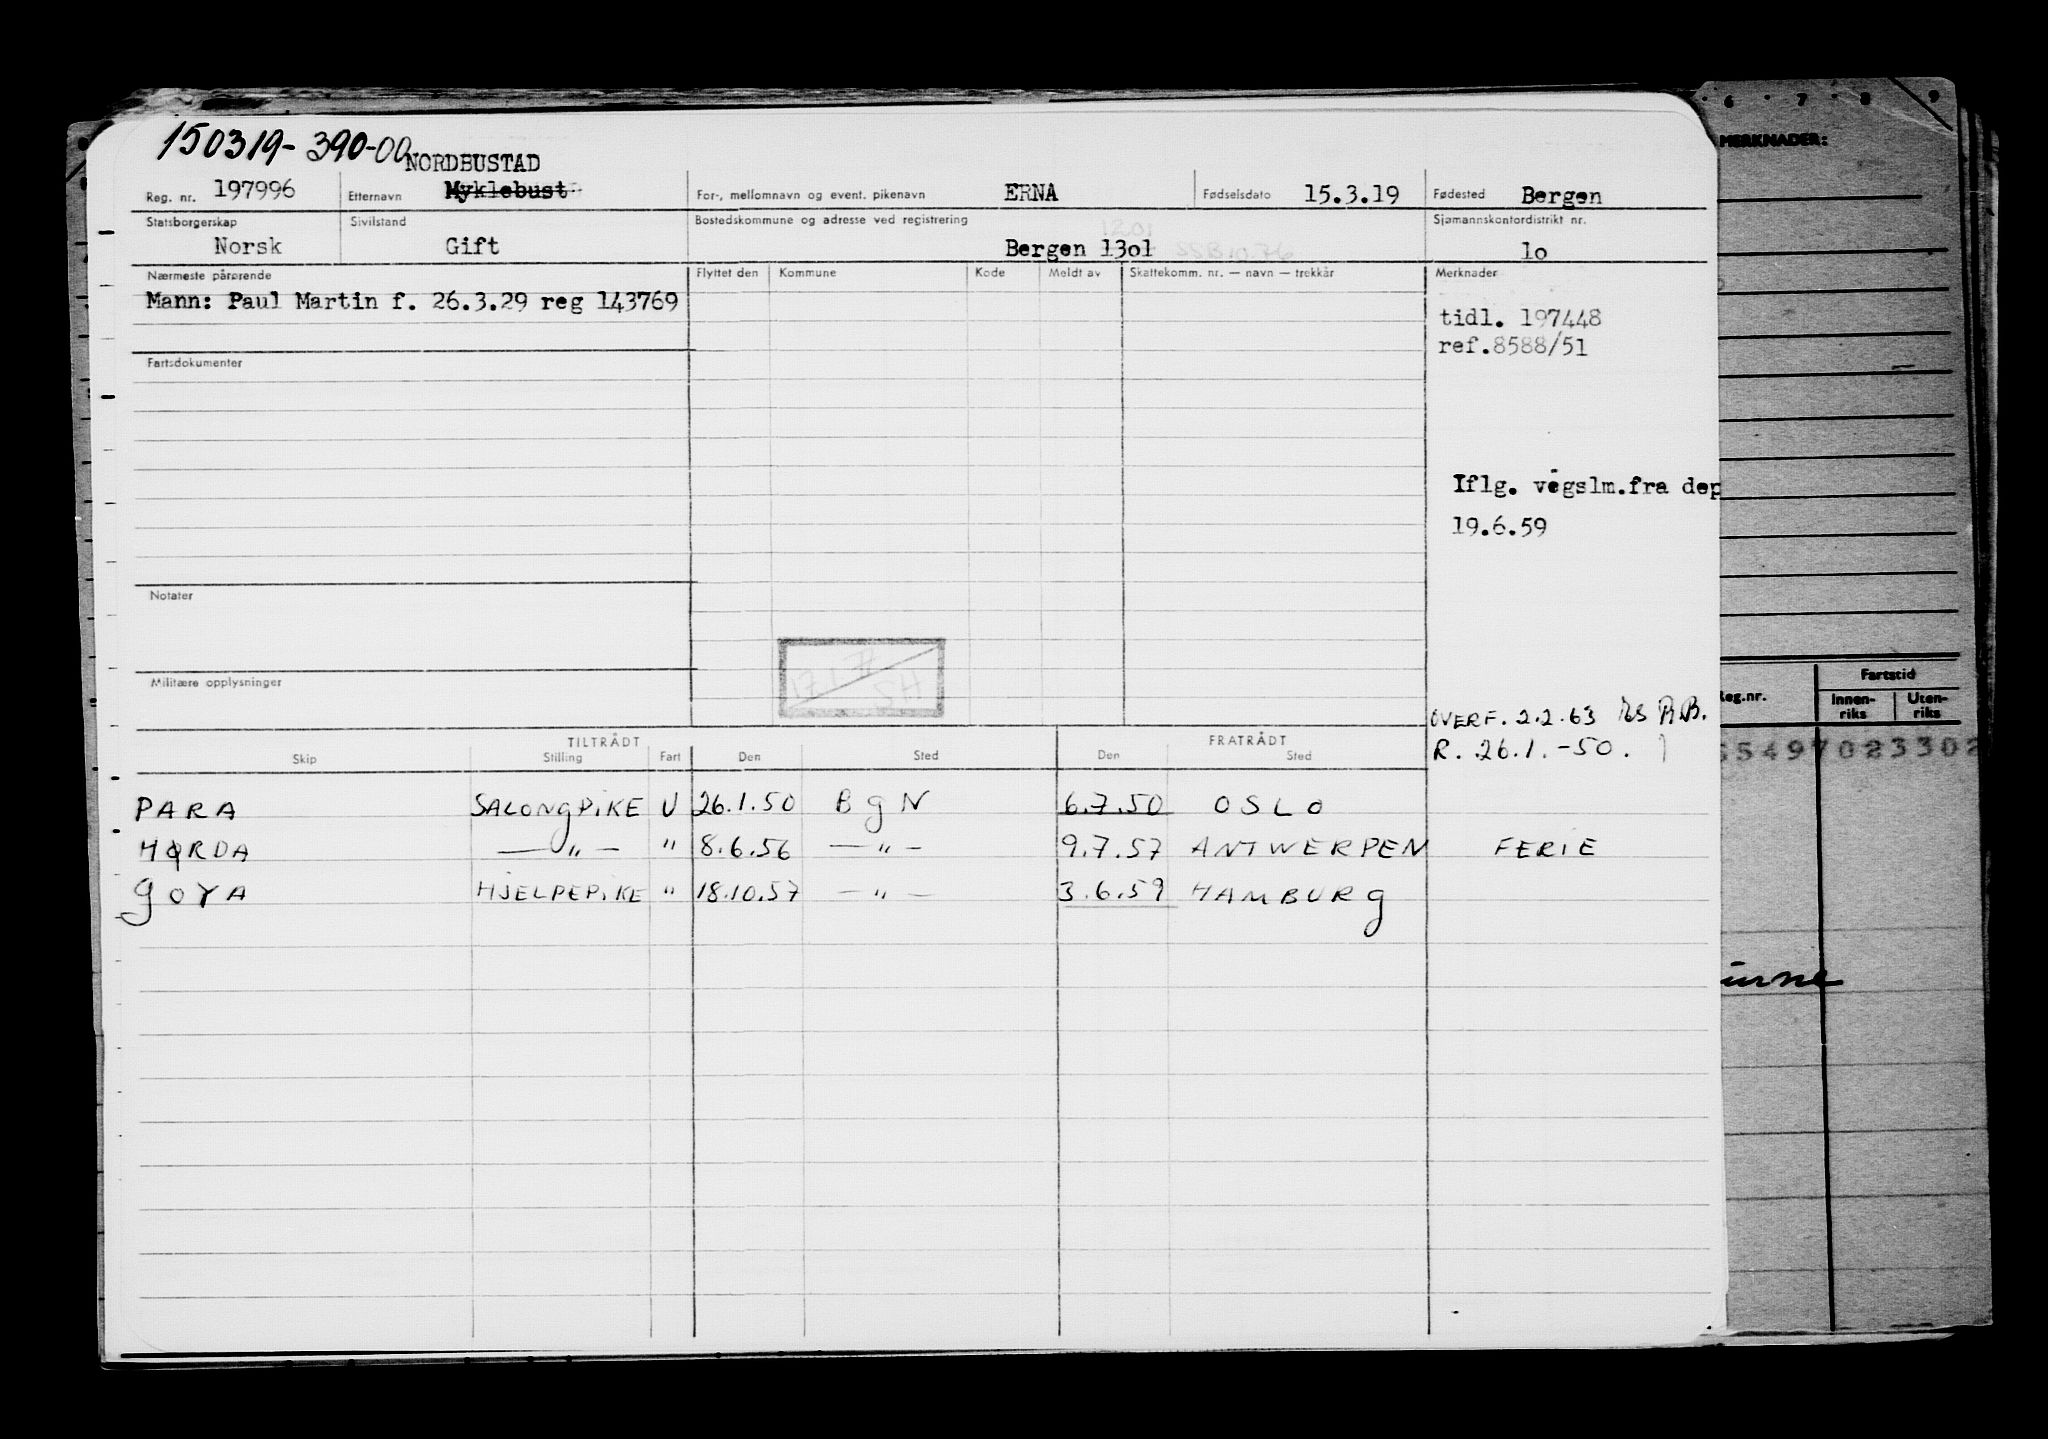 150319-390-00
NORDBUSTAD
Reg. nr. 197996 Etternavn Myklebust For-, mellomnavn og event. pikenavn ERNA Fødselsdato 15.3.19 Fødested Bergen
Statsborgerskap Sivilstand Bostedskommune og adresse ved registrering Sjømannskontordistrikt nr.
1201
Norsk Gift Bergen 13o1 SSB 10.76 1o
Nærmeste pårørende Flyttet den Kommune Kode Meldt av Skattekomm. nr. — navn — trekkår Merknader
Mann: Paul Martin f. 26.3.29 reg 143769
tidl. 197448
ref.8588/51
Fartsdokumenter
Iflg. vegslm.fra dep
19.6.59
Notater
Militære opplysninger
SH
OVERF. 2.2.63 B.B.
R. 26.1.-50.
TILTRÅDT FRATRÅDT
Skip Stilling Fart Den Sted Den Sted
PARA SALONGPIKE U 26.1.50 BgN 6.7.50 OSLO
HØRDA —„— " 8.6.56 —„— 9.7.57 ANTWERPEN FERIE
GOYA HJELPEPIKE " 18.10.57 —„— 3.6.59 HAMBURG
6 7 8 9
MERKNADER:
Reg.nr. Fartstid
Innen-riks Uten-riks
5497023302